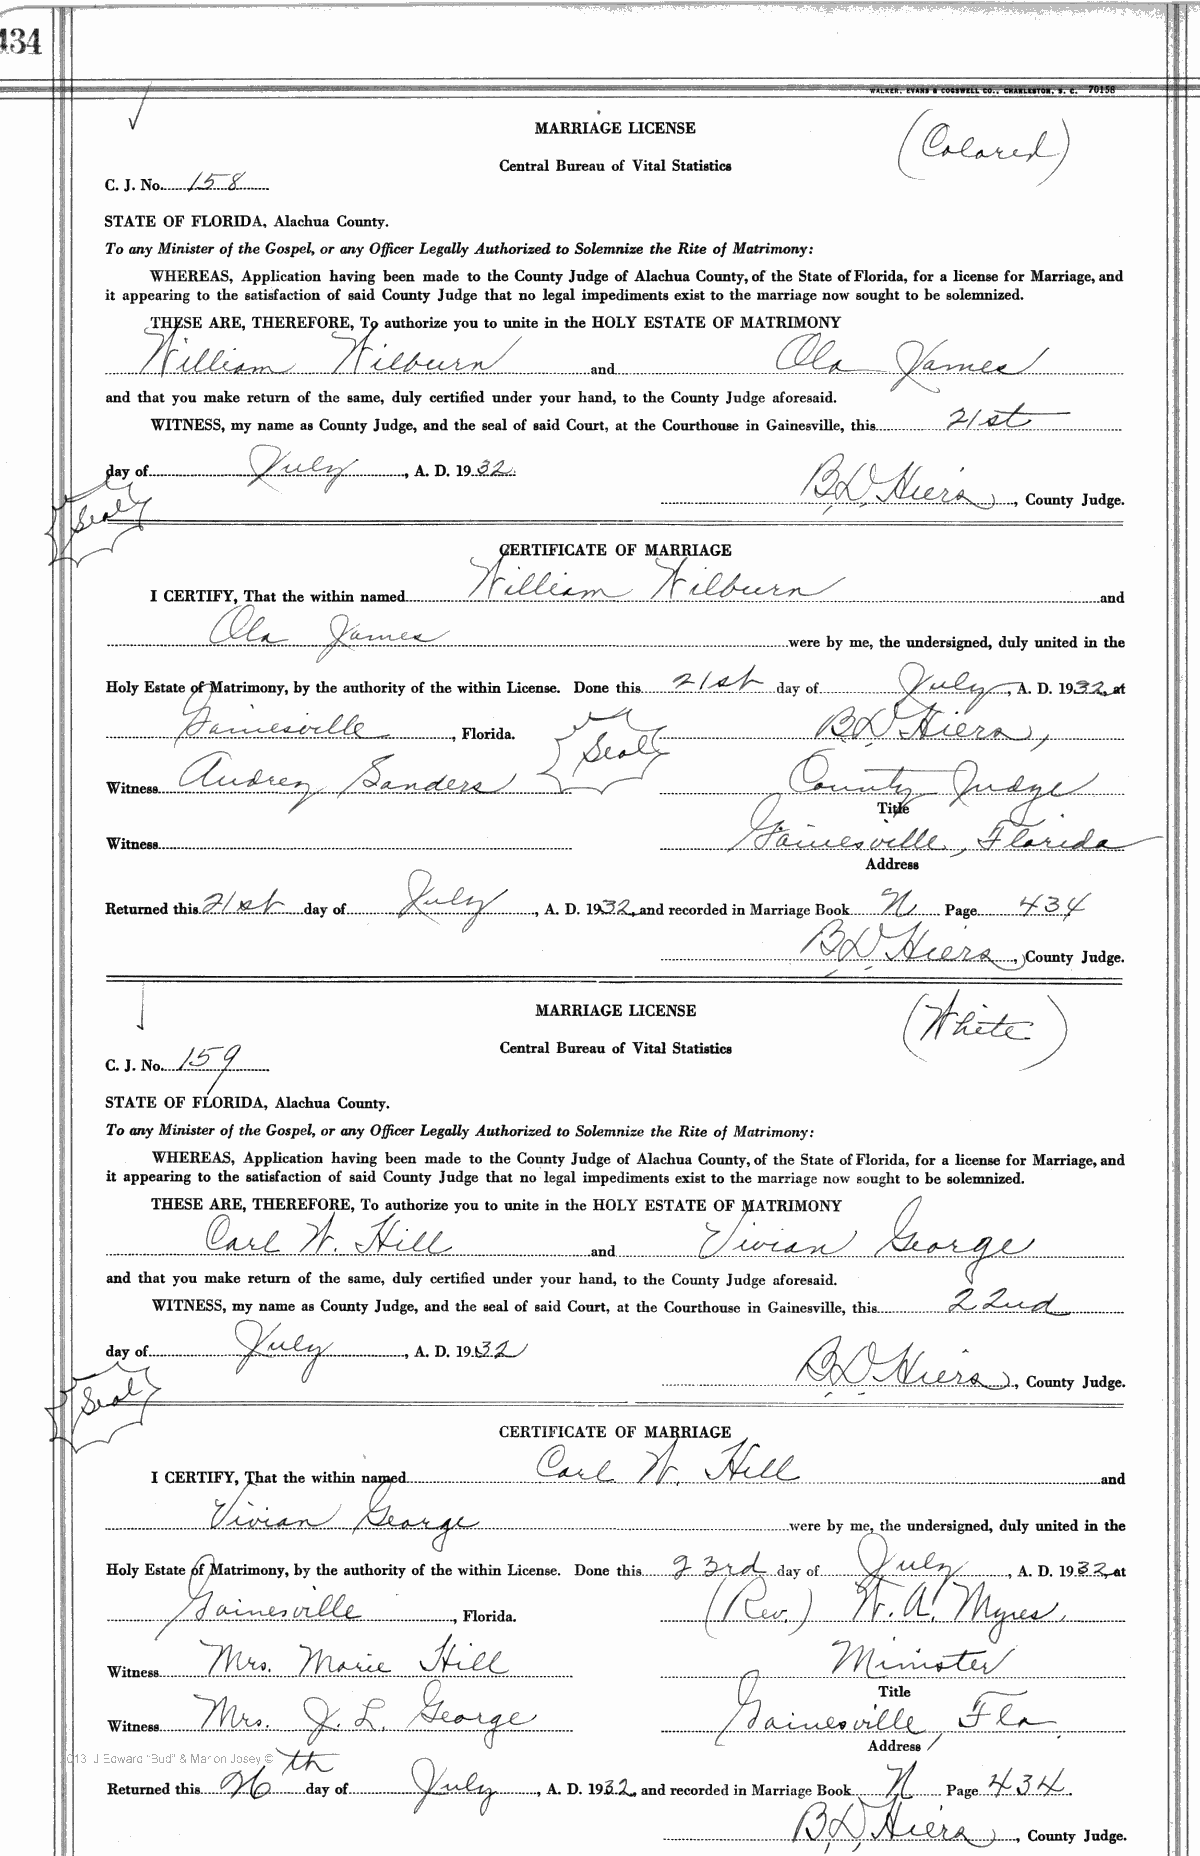 434
WALKER, EVANS & COGSWELL CO., CHARLESTON, S. C. 70158
MARRIAGE LICENSE
(Colored)
Central Bureau of Vital Statistics
C. J. No. 158
STATE OF FLORIDA, Alachua County.
To any Minister of the Gospel, or any Officer Legally Authorized to Solemnize the Rite of Matrimony:
WHEREAS, Application having been made to the County Judge of Alachua County, of the State of Florida, for a license for Marriage, and
it appearing to the satisfaction of said County Judge that no legal impediments exist to the marriage now sought to be solemnized.
THESE ARE, THEREFORE, To authorize you to unite in the HOLY ESTATE OF MATRIMONY
William Wilburn and Ola James
and that you make return of the same, duly certified under your hand, to the County Judge aforesaid.
WITNESS, my name as County Judge, and the seal of said Court, at the Courthouse in Gainesville, this 21st
day of July, A. D. 1932.
B.D. Hiers, County Judge.
Seal
CERTIFICATE OF MARRIAGE
I CERTIFY, That the within named William Wilburn and
Ola James were by me, the undersigned, duly united in the
Holy Estate of Matrimony, by the authority of the within License. Done this 21st day of July, A. D. 1932, at
Gainesville, Florida. Seal B.D. Hiers,
Witness Audrey Sanders County Judge
Title
Witness Gainesville, Florida
Address
Returned this 21st day of July, A. D. 1932, and recorded in Marriage Book N Page 434
B.D. Hiers, County Judge.
MARRIAGE LICENSE
(White)
Central Bureau of Vital Statistics
C. J. No. 159
STATE OF FLORIDA, Alachua County.
To any Minister of the Gospel, or any Officer Legally Authorized to Solemnize the Rite of Matrimony:
WHEREAS, Application having been made to the County Judge of Alachua County, of the State of Florida, for a license for Marriage, and
it appearing to the satisfaction of said County Judge that no legal impediments exist to the marriage now sought to be solemnized.
THESE ARE, THEREFORE, To authorize you to unite in the HOLY ESTATE OF MATRIMONY
Carl W. Hill and Vivian George
and that you make return of the same, duly certified under your hand, to the County Judge aforesaid.
WITNESS, my name as County Judge, and the seal of said Court, at the Courthouse in Gainesville, this 22nd
day of July, A. D. 1932
B.D. Hiers, County Judge.
Seal
CERTIFICATE OF MARRIAGE
I CERTIFY, That the within named Carl W. Hill and
Vivian George were by me, the undersigned, duly united in the
Holy Estate of Matrimony, by the authority of the within License. Done this 23rd day of July, A. D. 1932, at
Gainesville, Florida. (Rev.) W. A. Myres.
Witness Mrs. Marie Hill Minister
Title
Witness Mrs. J. L. George Gainesville, Fla.
Address
013 J Edward "Bud" & Marion Josey ©
Returned this 26th day of July, A. D. 1932, and recorded in Marriage Book N Page 434.
B.D. Hiers, County Judge.